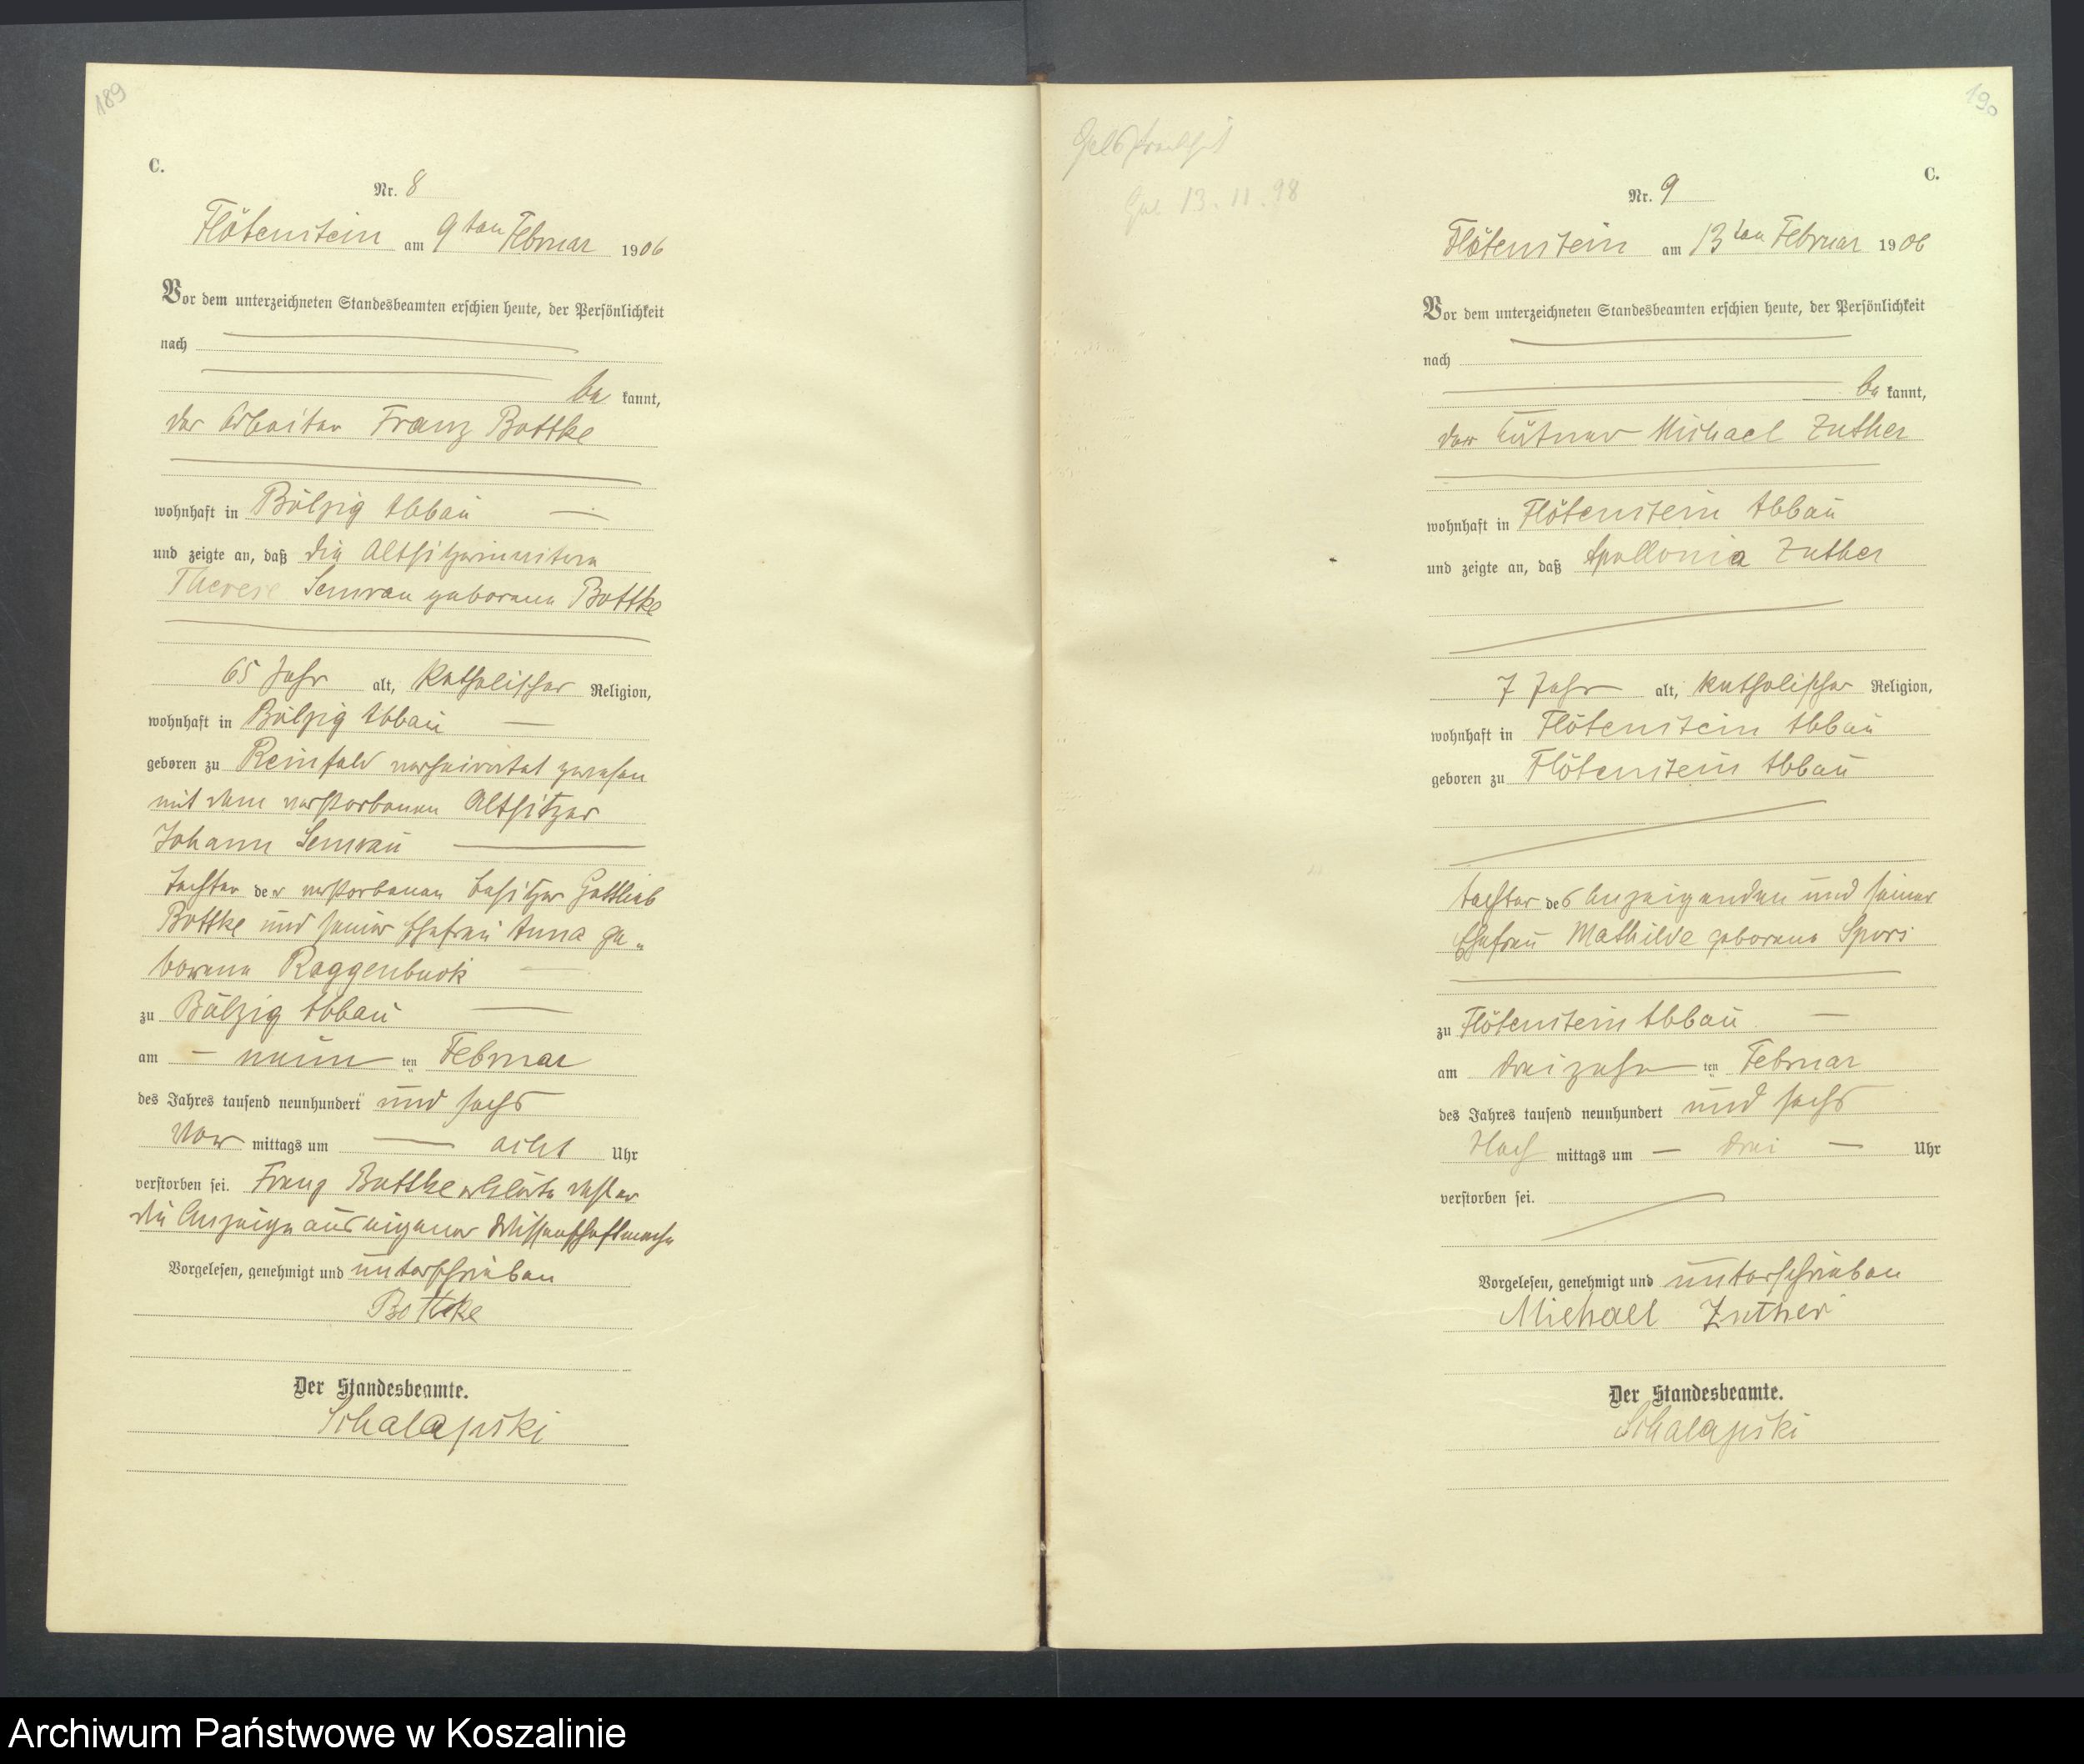 189
C.
Nr. 8
Flötenstein am 9ten Februar 1906
Vor dem unterzeichneten Standesbeamten erschien heute, der Persönlichkeit
nach
be kannt,
der Arbeiter Franz Bottke
wohnhaft in Bölzig Abbau
und zeigte an, daß die Altsitzerwitwe
Therese Semrau geborene Bottke
65 Jahr alt, katholischer Religion,
wohnhaft in Bölzig Abbau
geboren zu Reinfeld verheiratet gewesen
mit dem verstorbenen Altsitzer
Johann Semrau
Tochter der verstorbenen Besitzer Gottlieb
Bottke und seiner Ehefrau Anna ge„
borene Roggenbuck
zu Bölzig Abbau
am neun ten Februar
des Jahres tausend neunhundert und sechs
Vor mittags um acht Uhr
verstorben sei. Franz Bottke erklärte daß er
die Anzeige aus eigener Wissenschaft mache
Vorgelesen, genehmigt und unterschrieben
Bottke
Der Standesbeamte.
Schalapski
190
Gel. 13.11.98
C.
Nr. 9
Flötenstein am 13ten Februar 1906
Vor dem unterzeichneten Standesbeamten erschien heute, der Persönlichkeit
nach
be kannt,
der Michael Zuther
wohnhaft in Flötenstein Abbau
und zeigte an, daß Apollonia Zuther
7 Jahr alt, katholischer Religion,
wohnhaft in Flötenstein Abbau
geboren zu Flötenstein Abbau
Tochter des Anzeigenden und seiner
Ehefrau Mathilde geborene Spors
zu Flötenstein Abbau
am dreizehn ten Februar
des Jahres tausend neunhundert und sechs
Nach mittags um drei Uhr
verstorben sei.
Vorgelesen, genehmigt und unterschrieben
Michael Zuther
Der Standesbeamte.
Schalapski
Archiwum Państwowe w Koszalinie